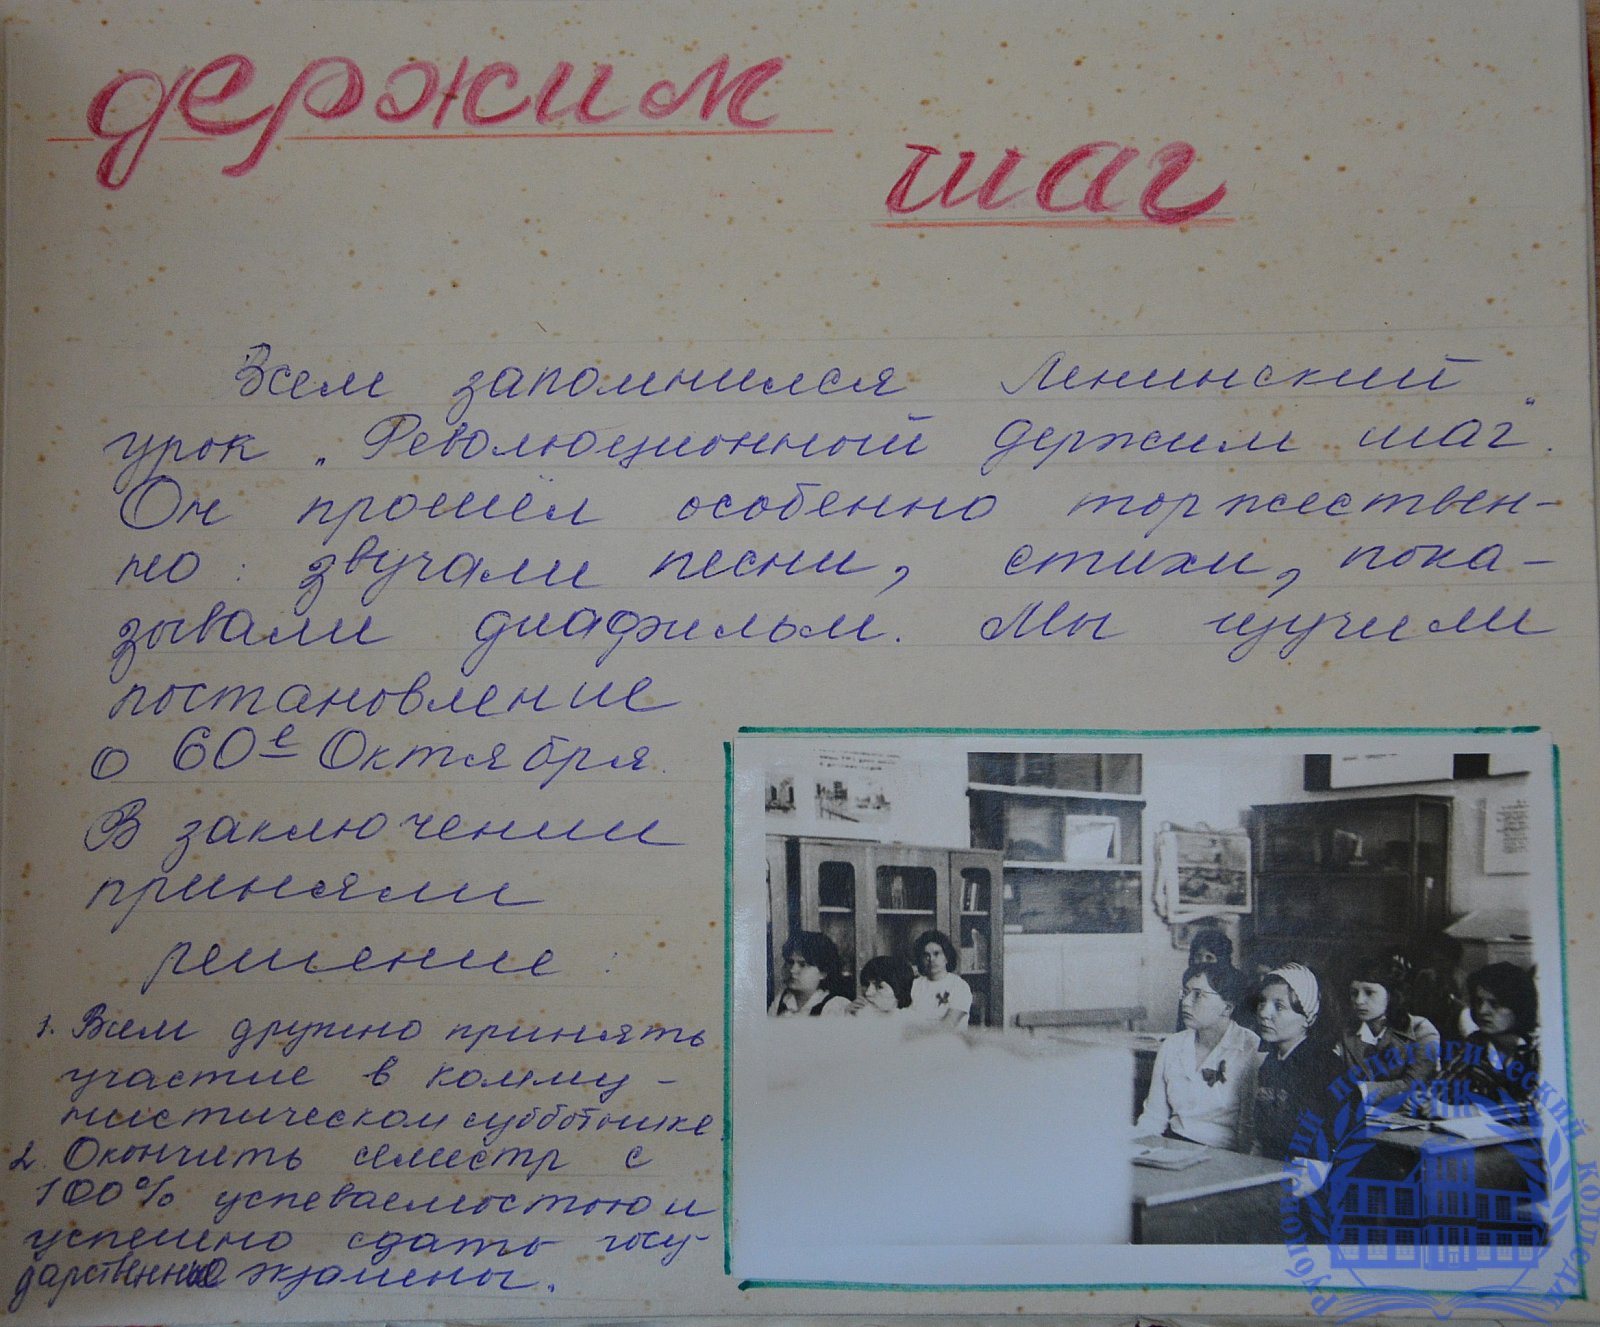 держим
шаг
Всем запомнился Ленинский
урок „Революционный держим шаг".
Он прошёл особенно торжествен-
но: звучали песни, стихи, пока-
зывали диафильм. Мы изучили
постановление
о 60е Октября.
В заключении
приняли
решение:
1. Всем дружно принять
участие в комму-
нистическом субботнике.
2. Окончить семестр с
100% успеваемостью и
успешно сдать госу-
дарственные экзамены.
Рубцовский педагогический колледж
РПК